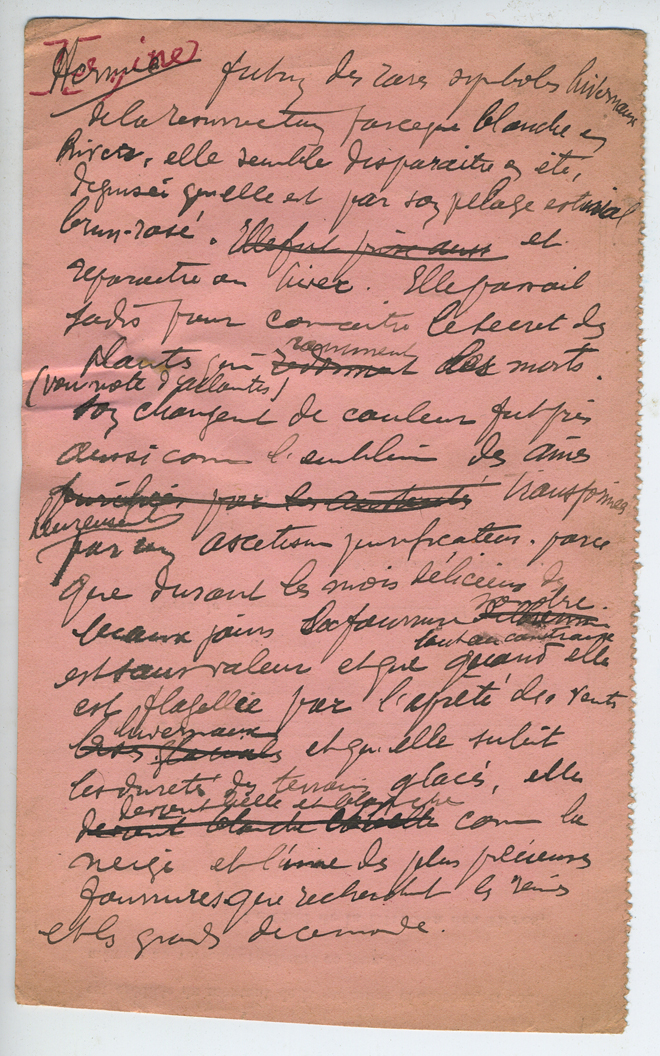 Hermine
Hermine fut un des rares symboles hivernaux
de la résurrection parce que blanche en
hiver, elle semble disparaitre en été,
déguisée qu'elle est par son pelage estival
brun-rosé. Elle fut prise aussi et
reparaitre en hiver. Elle passait
jadis pour connaitre le secret des
plantes qui raniment les morts.
(voir note d'allantes)
Son changent de couleur fut pris
aussi comme l'emblème des âmes
purifiées par les austérités transformées
heureusement
par un ascétisme purificateur. parce
que durant les mois délicieux des
beaux jours sa fourrure sombre
est sans valeur et que tout au contraire quand elle
est flagellée par l'apreté des vents
hivernaux et qu'elle subit
les duretés des terrains glacés, elle
devient belle et blanche
devient blanche comme la
neige et l'une des plus précieuses
fourrures que recherchent les reines
et les grands de ce monde.